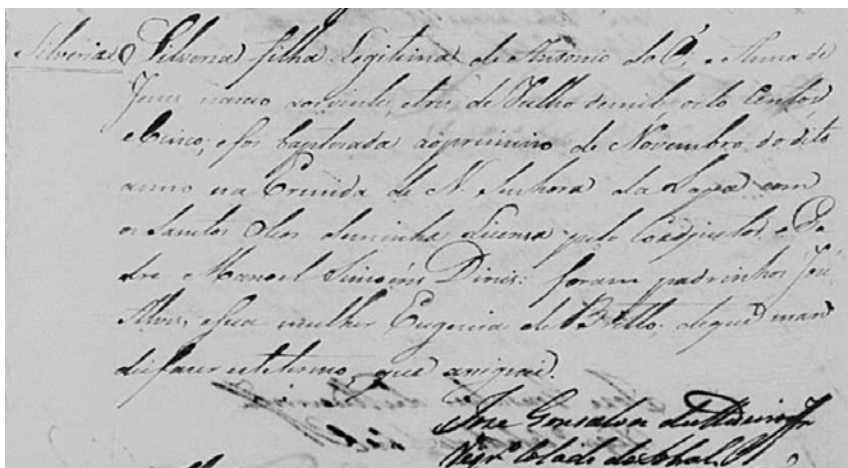 Silveria Silveria filha Legitima de Antonio do Ó, e Anna de
Jesus, nasceo a vinte, e tres de Julho de mil, oito Centos,
e Cinco, e foi baptizada ao primeiro de Novembro, do dito
anno na Ermida de N. Senhora da Lapa com
os Santos Oleos de minha Licensa pelo Coadjuctor, o Pa-
dre Manoel Simoens Dinis: foram padrinhos José
Alves, e sua mulher Eugenia de Bello, de que man-
dei fazer este termo, que assignei.
Jose Gonsalves
Vigr.º Colado